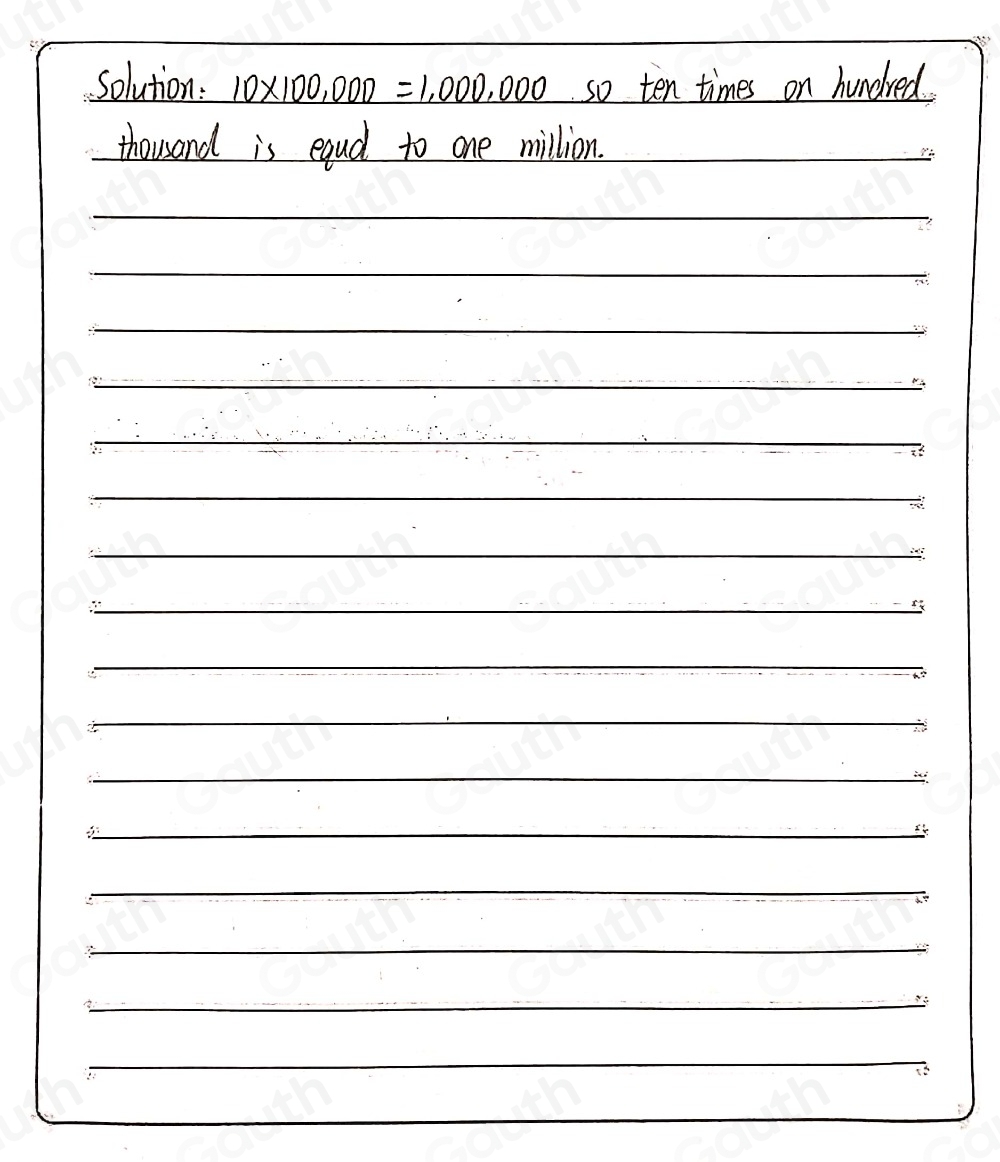 Solution: 10×100,000 = 1,000,000 so ten times on hundred
thousand is equal to one million.